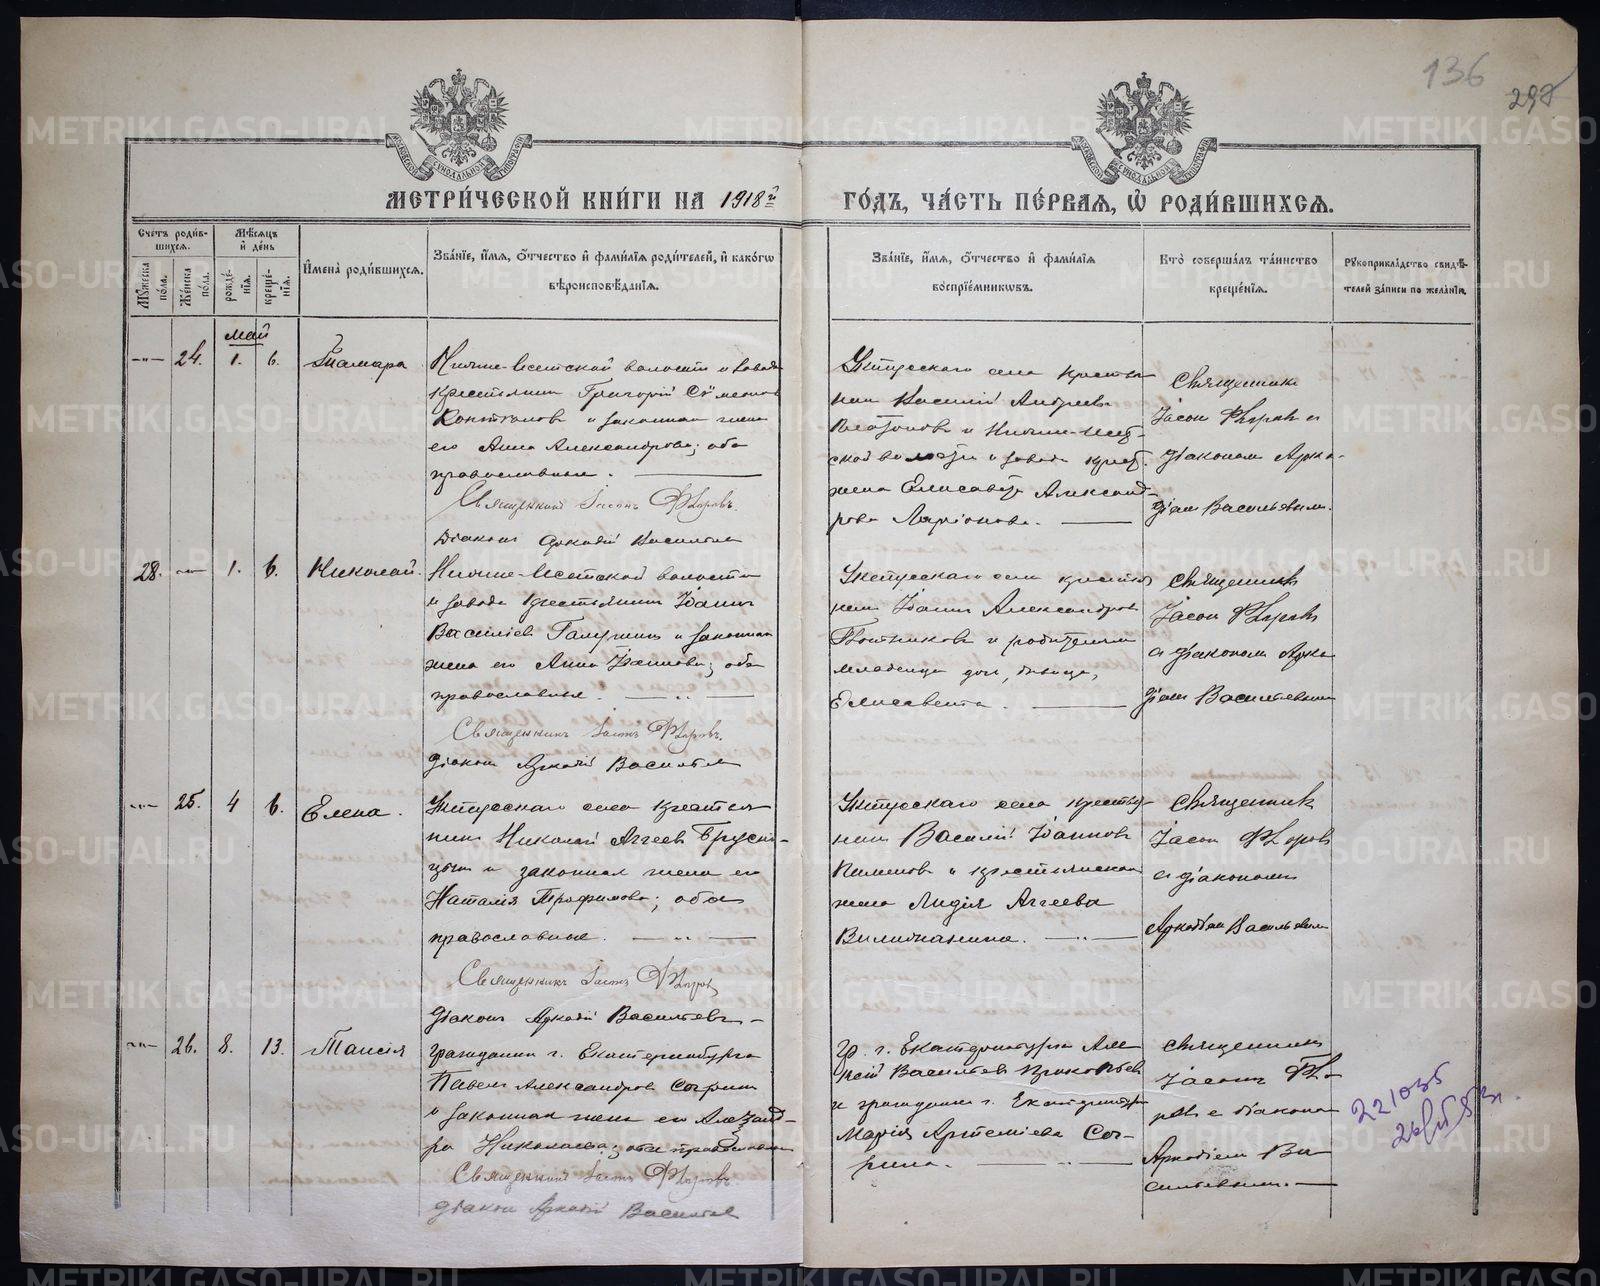 136
298
МЕТРИЧЕСКОЙ КНИГИ НА 1918й ГОДЪ, ЧАСТЬ ПЕРВАЯ, Ѡ РОДИВШИХСЯ.
Счетъ родившихся.
Мужеска пола.
Женска пола.
Мѣсяцъ и день
рожденія.
крещенія.
Имена родившихся.
Званіе, имя, отчество и фамилія родителей, и какогѡ вѣроисповѣданія.
Званіе, имя, отчество и фамилія воспріемникѡвъ.
Кто совершалъ таинство крещенія.
Рукоприкладство свидѣтелей записи по желанію.
Май
24. 1. 6. Тамара
Нижне-Исетской волости и завода
крестьянин Григорій Сѵмеонов
и законная жена
его Анна Александрова; оба
православные.
Священникъ Іасонъ Флоровъ.
Діакон Аркадій Васильев
Уктусскаго села крестья-
нин Василій Андреев
Платонов и Нижне-Исет-
ской волости и завода крест.
жена Елисавета Александ-
рова Ларіонова.
Священник
Іасон Флоров с
діаконом Арка-
діем Васильевым.
28. 1. 6. Николай.
Нижне-Исетской волости
и завода крестьянин Іоанн
Василіев Галушин и законная
жена его Анна Іоаннова; оба
православные.
Священникъ Іасонъ Флоровъ.
Діакон Аркадій Васильев
Уктусскаго села крестья-
нин Іоанн Александров
Плотников и родителей
младенца дочь, девица,
Елисавета.
Священник
Іасон Флоров
с діаконом Арка-
діем Васильевым
25. 4 6. Елена.
Уктусскаго села крестья-
нин Николай Аггеев Брусни-
цын и законная жена его
Наталія Трофимова; оба
православные.
Священникъ Іасонъ Флоров
Діакон Аркадій Васильевъ
Уктусскаго села крестья-
нин Василій Іоаннов
Пименов и крестьянская
жена Лидія Аггеева
Священник
Іасон Флоров
с діаконом
Аркадіем Васильевым
26. 8. 13. Таисія
Гражданин г. Екатеринбурга
Павел Александров Согрин
и законная жена его Александ-
ра Николаева; оба православные
Священникъ Іасонъ Флоровъ
Діакон Аркадій Васильев
Гр. г. Екатеринбурга Але-
ксій Васильев Прокопьев
и гражданка г. Екатеринбур.
Марія Артеміева Сог-
рина.
Священник
Іасонъ Фло-
ров с діаконом
Аркадіем Ва-
сильевым.
METRIKI.GASO-URAL.RU